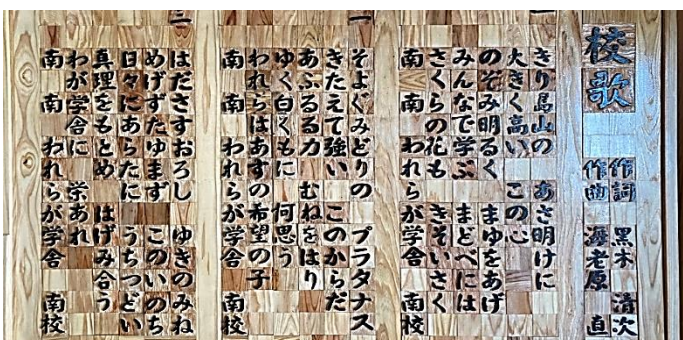 校歌
作詞 黒木 清次
作曲 海老原 直
一
きり島山の あさ明けに
大きく高い この心
のぞみ明るく まゆをあげ
みんなで学ぶ まどべには
さくらの花も きそいさく
南 南 われらが学舎 南校
二
そよぐみどりの プラタナス
きたえて強い このからだ
あふるる力 むねをはり
ゆく白くもに 何思う
われらはあすの希望の子
南 南 われらが学舎 南校
三
はださすおろし ゆきのみね
めげずたゆまず このいのち
日々にあらたに うちつどい
真理をもとめ はげみ合う
わが学舎に 栄あれ
南 南 われらが学舎 南校